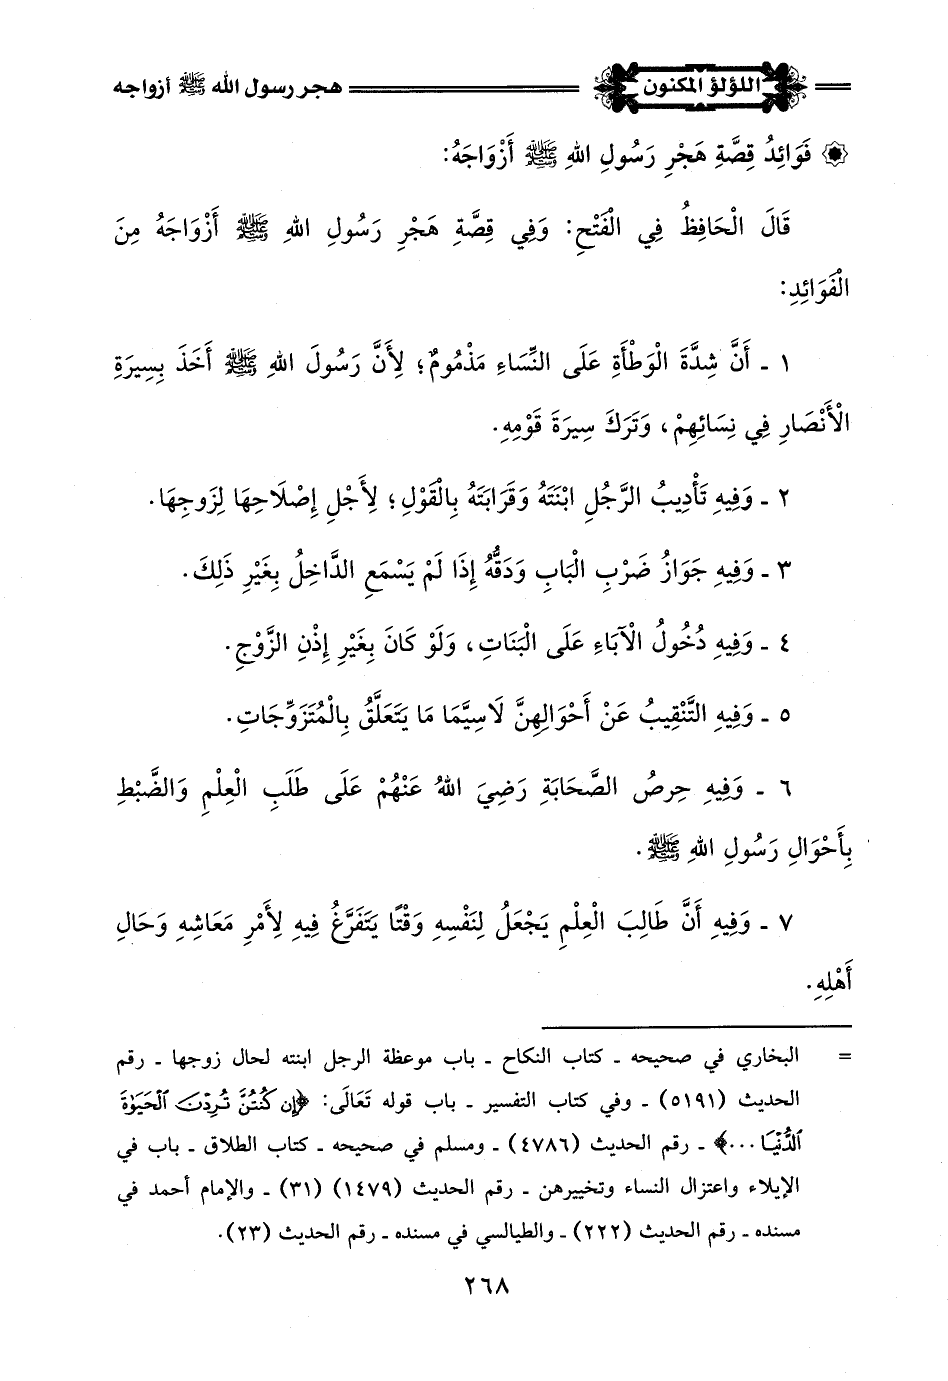 اللؤلؤ المكنون هجر رسول الله ﷺ أزواجه
فَوَائِدُ قِصَّةِ هَجْرِ رَسُولِ اللهِ ﷺ أَزْوَاجَهُ:
قَالَ الْحَافِظُ فِي الْفَتْحِ: وَفِي قِصَّةِ هَجْرِ رَسُولِ اللهِ ﷺ أَزْوَاجَهُ مِنَ
الْفَوَائِدِ:
١ ـ أَنَّ شِدَّةَ الْوَطْأَةِ عَلَى النِّسَاءِ مَذْمُومٌ؛ لِأَنَّ رَسُولَ اللهِ ﷺ أَخَذَ بِسِيرَةِ
الْأَنْصَارِ فِي نِسَائِهِمْ، وَتَرَكَ سِيرَةَ قَوْمِهِ.
٢ ـ وَفِيهِ تَأْدِيبُ الرَّجُلِ ابْنَتَهُ وَقَرَابَتَهُ بِالْقَوْلِ؛ لِأَجْلِ إِصْلَاحِهَا لِزَوجِهَا.
٣ ـ وَفِيهِ جَوَازُ ضَرْبِ الْبَابِ وَدَقُّهُ إِذَا لَمْ يَسْمَعِ الدَّاخِلُ بِغَيْرِ ذَلِكَ.
٤ ـ وَفِيهِ دُخُولُ الْآبَاءِ عَلَى الْبَنَاتِ، وَلَوْ كَانَ بِغَيْرِ إِذْنِ الزَّوْجِ.
٥ ـ وَفِيهِ التَّنْقِيبُ عَنْ أَحْوَالِهِنَّ لَاسِيَّمَا مَا يَتَعَلَّقُ بِالْمُتَزَوِّجَاتِ.
٦ ـ وَفِيهِ حِرصُ الصَّحَابَةِ رَضِيَ اللهُ عَنْهُمْ عَلَى طَلَبِ الْعِلْمِ وَالضَّبْطِ
بِأَحْوَالِ رَسُولِ اللهِ ﷺ.
٧ ـ وَفِيهِ أَنَّ طَالِبَ الْعِلْمِ يَجْعَلُ لِنَفْسِهِ وَقْتًا يَتَفَرَّغُ فِيهِ لِأَمْرِ مَعَاشِهِ وَحَالِ
أَهْلِهِ.
= البخاري في صحيحه ـ كتاب النكاح ـ باب موعظة الرجل ابنته لحال زوجها ـ رقم
الحديث (٥١٩١) ـ وفي كتاب التفسير ـ باب قوله تَعَالَى: ﴿إِن كُنتُنَّ تُرِدْنَ ٱلْحَيَوٰةَ
ٱلدُّنْيَا ...﴾ ـ رقم الحديث (٤٧٨٦) ـ ومسلم في صحيحه ـ كتاب الطلاق ـ باب في
الإيلاء واعتزال النساء وتخييرهن ـ رقم الحديث (١٤٧٩) (٣١) ـ والإمام أحمد في
مسنده ـ رقم الحديث (٢٢٢) ـ والطيالسي في مسنده ـ رقم الحديث (٢٣).
٢٦٨